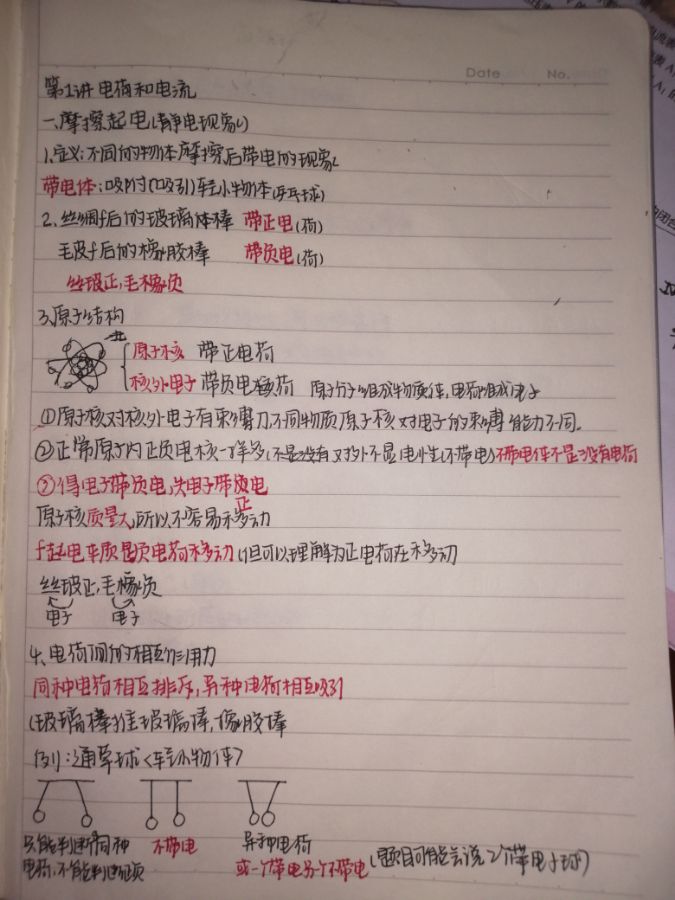 Date No.
第1讲 电荷和电流
一、摩擦起电(静电现象)
1.定义:不同的物体摩擦后带电的现象
带电体:吸附(吸引)轻小物体(乒乓球)
2.丝绸f后的玻璃体棒 带正电(荷)
毛皮f后的橡胶棒 带负电(荷)
丝玻正,毛橡负
3.原子结构
原子核 带正电荷
核外电子 带负电荷 原子分子组成物质体,电荷组成电子
①原子核对核外电子有束缚力不同物质原子核对电子的束缚能力不同.
②正常原子内正负电核一样多(不是没有)对外不显电性(不带电)不带电体不是没有电荷
③得电子带负电,失电子带电
正
原子核质量大,所以不容易移动
f起电本质是负电荷移动(但可以理解为正电荷在移动
丝玻正,毛橡负
电子 电子
4、电荷间的相互作用力
同种电荷相互排斥,异种电荷相互吸引
(玻璃棒 玻璃棒,橡胶棒
例:通草球<轻小物体>
只能判断同种 不带电 异种电荷
电荷,不能判断 或一个带电另一个不带电(题目可能会说2个带电子球)